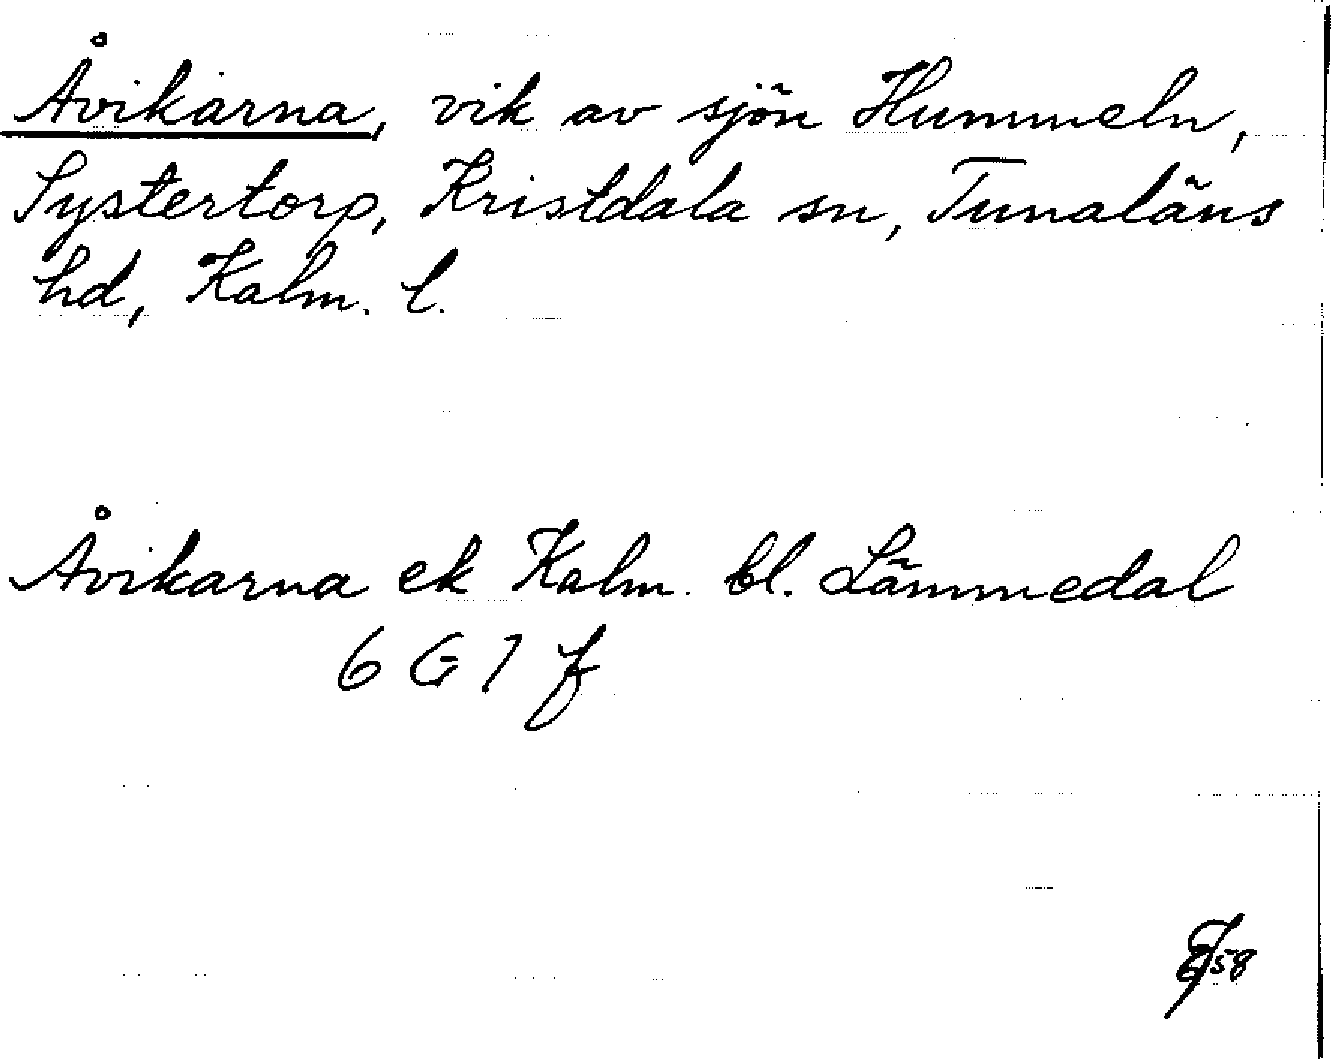 Åvikarna, vik av sjön Hummeln,
Systertorp, Kristdala sn, Tunaläns
hd, Kalm. l.
Åvikarna ek Kalm. bl. Lämmedal
6 G 7 f
58